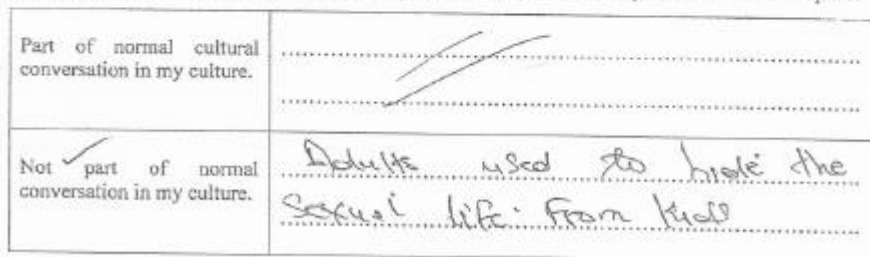 Part of normal cultural
conversation in my culture.
Not part of normal
conversation in my culture.
Adults used to hide the
Sexual life From Kids